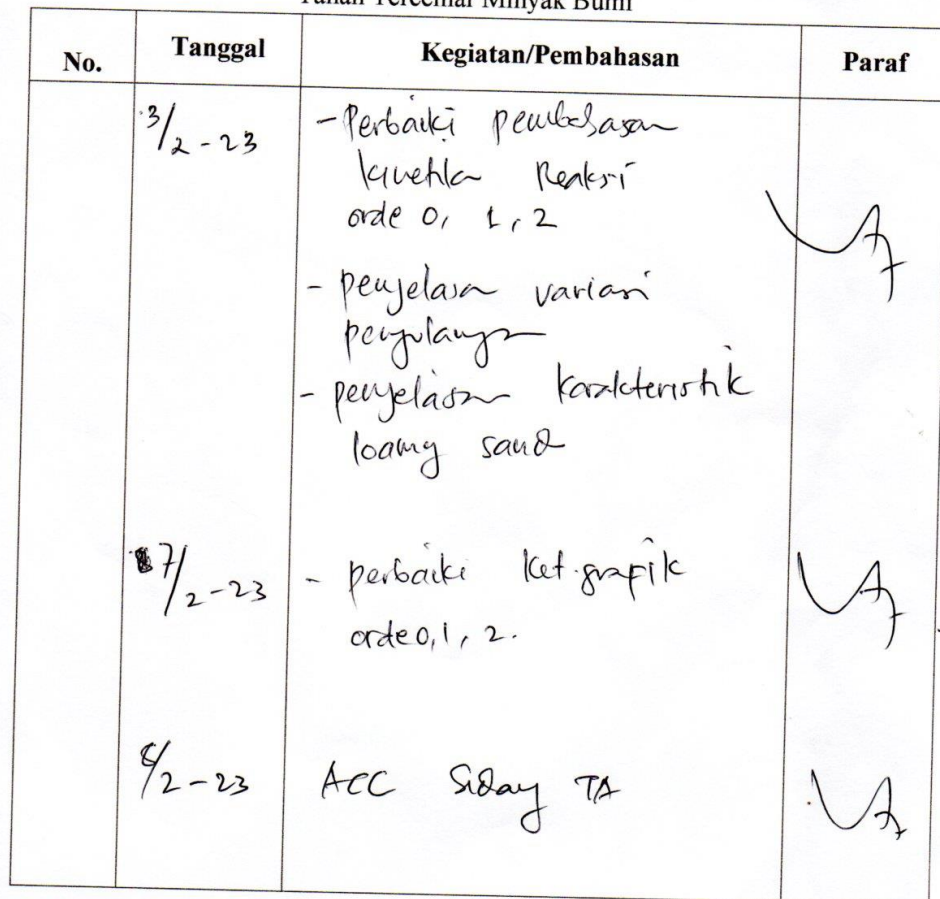 Tanah Tercemar Minyak Bumi
No. Tanggal Kegiatan/Pembahasan Paraf
3/2-23 - Perbaiki pembahasan
kinetika Reaksi
orde 0, 1, 2
- penjelasan variasi
pengulangan
- penjelasan karakteristik
loamy sand
7/2-23 - perbaiki ket. grafik
orde 0, 1, 2.
8/2-23 ACC Sidang TA